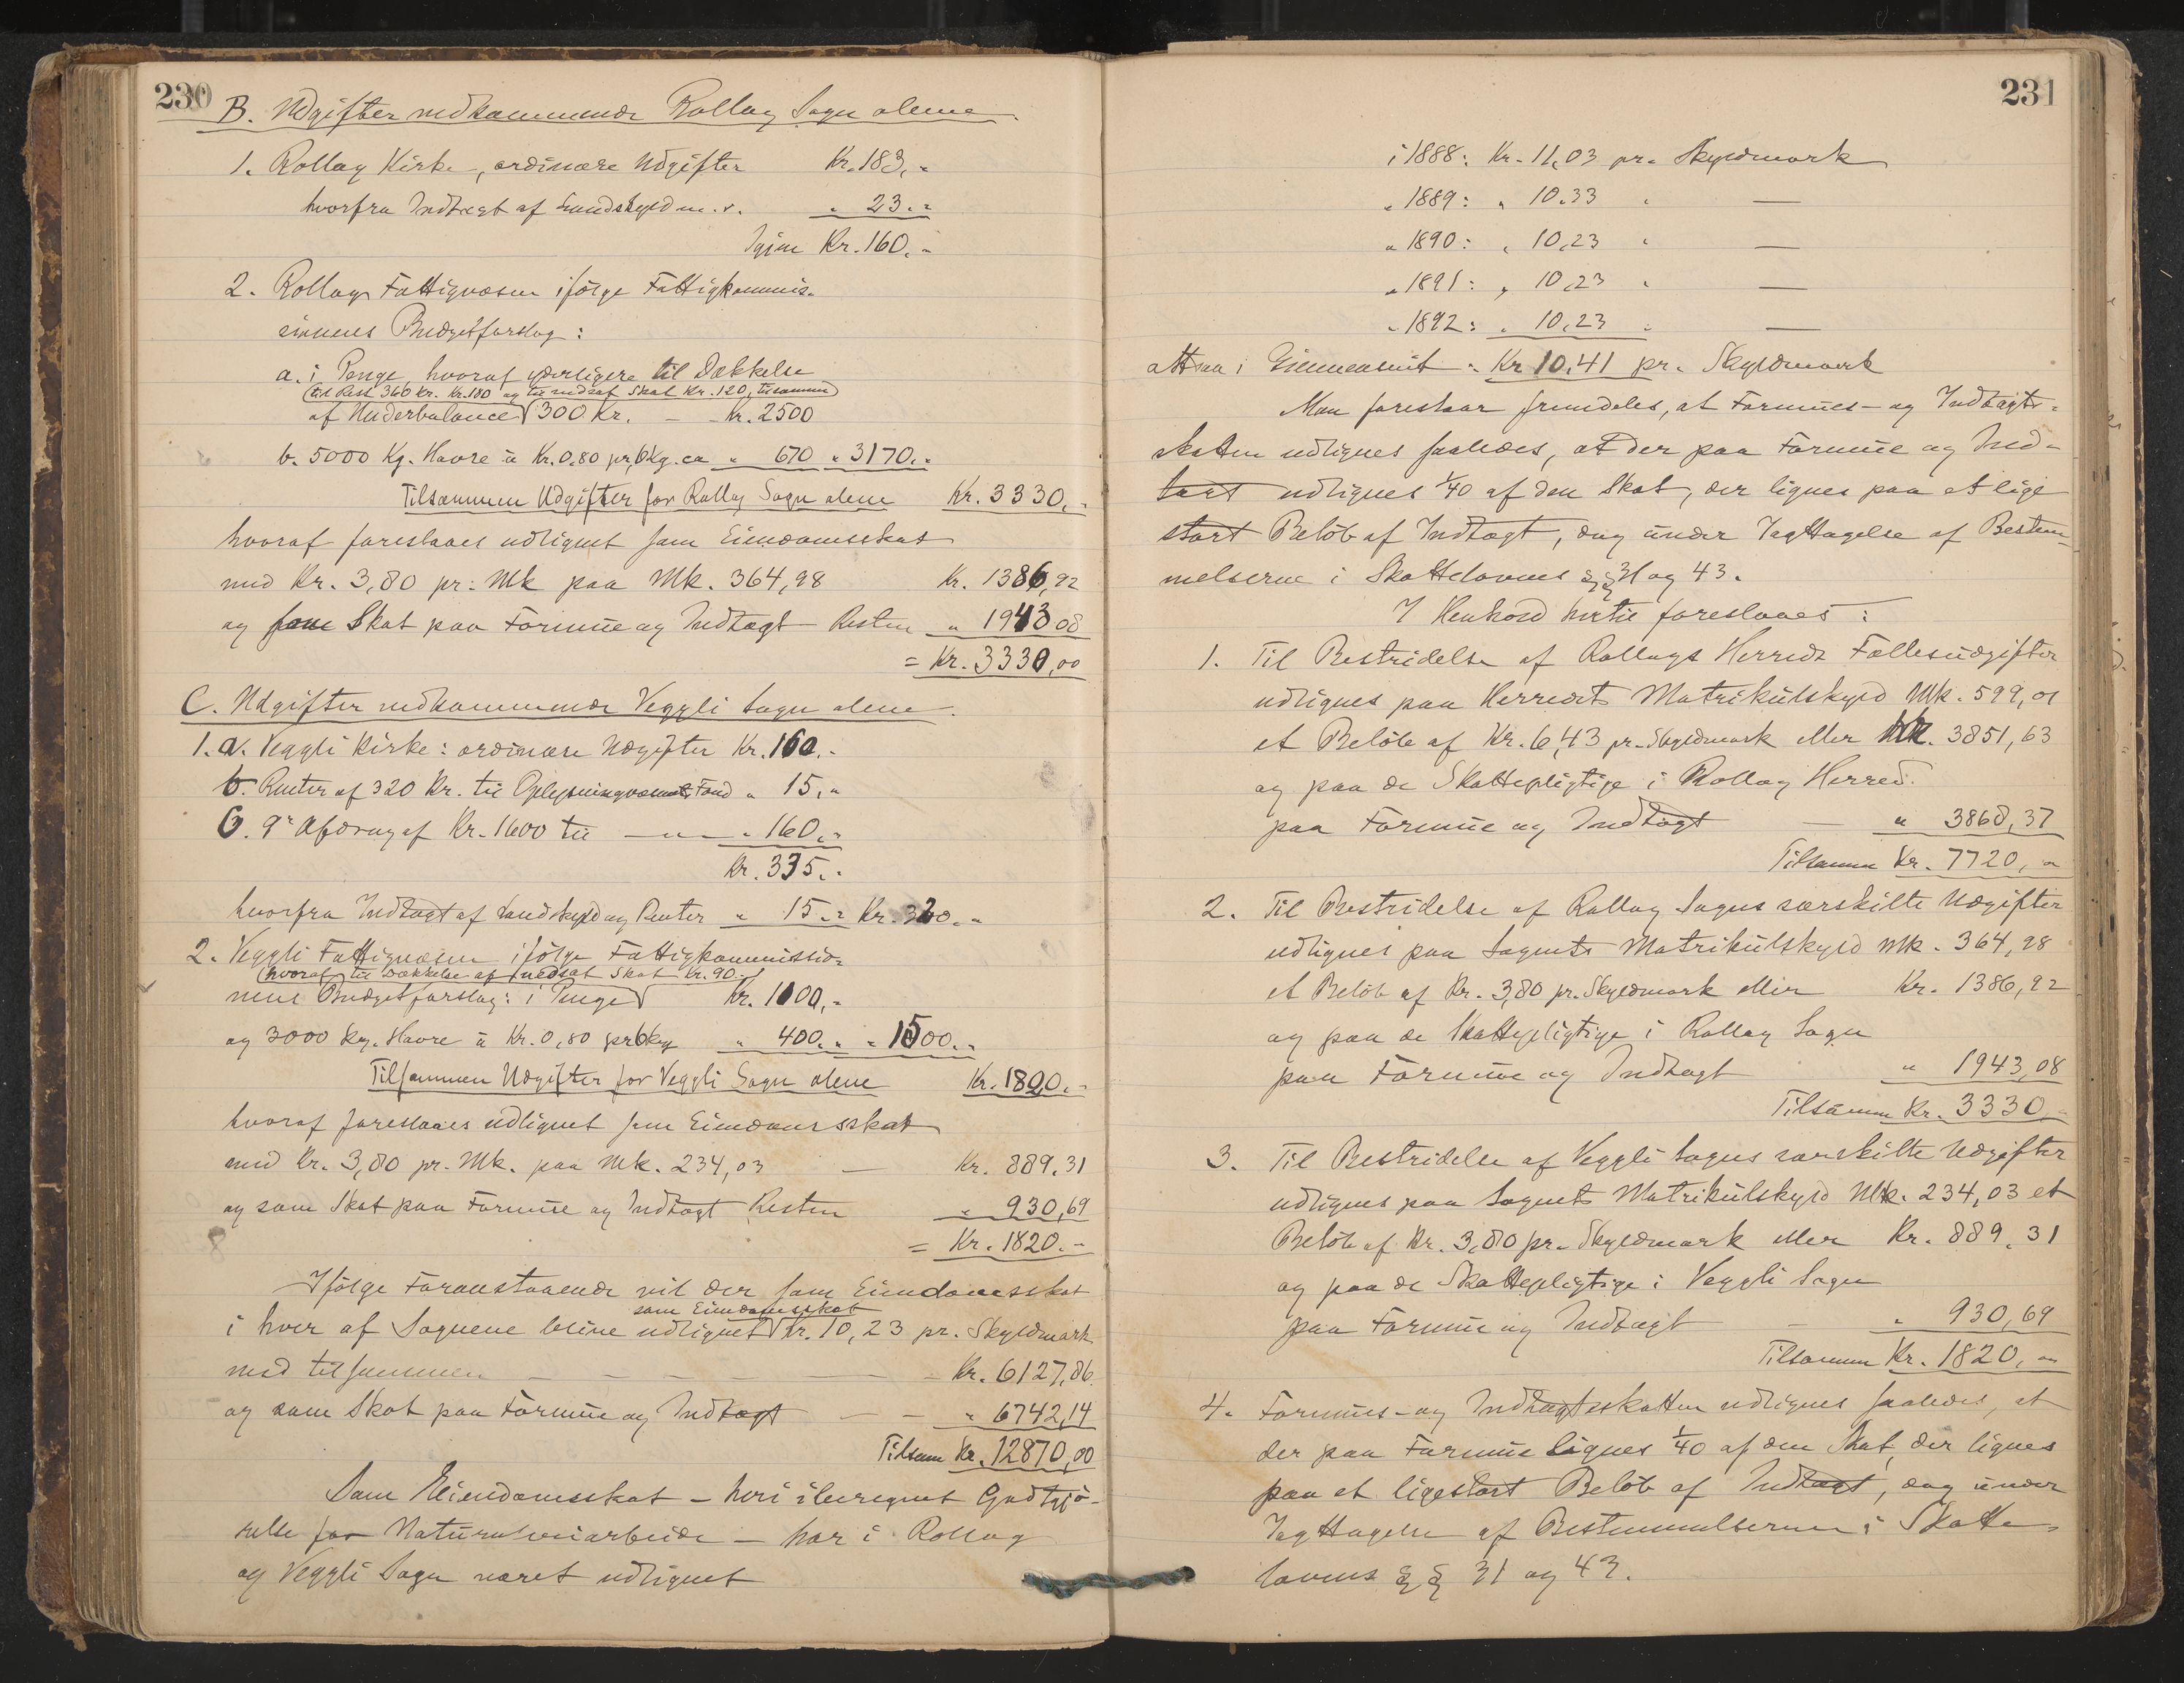 230
B. Udgifter vedkommende Rollag Sogn alene.
1. Rollag Kirke, ordinære Udgifter Kr. 183,-
hvorfra Indtægt af Landskyld m. v. " 23.-
Igjen Kr. 160.-
2. Rollags Fattigvæsen ifölge Fattigkommis-
sionens Budgetforslag:
a. i Penge hvoraf yderligere til Dækkelse
(til Rest 360 kr. Kr. 180 og til nedsat Skat Kr. 120, tilsammen)
af Underbalance 300 Kr. — Kr. 2500
b. 5000 Kg. Havre à Kr. 0,80 pr. 6 Kg. ca " 670 " 3170.-
Tilsammen Udgifter for Rollag Sogn alene Kr. 3330.-
hvoraf foreslaaes udlignet som Eiendomsskat
med Kr. 3,80 pr. Mk paa Mk. 364,98 Kr. 1386,92
og som Skat paa Formue og Indtægt Resten " 1943 08
= Kr. 3330,00
C. Udgifter vedkommende Veggli Sogn alene.
1. a. Veggli Kirke: ordinære Udgifter Kr. 160.-
b. Renter af 320 Kr. til Oplysningvæsenets Fond " 15.-
c. 9de Afdrag af Kr. 1600 til —"— " 160.-
Kr. 335.-
hvorfra Indtægt af Landskyld og Renter " 15.- Kr. 320.-
2. Veggli Fattigvæsen ifölge Fattigkommissio-
(hvoraf til Dækkelse af nedsat Skat Kr. 90.-)
nens Budgetforslag: i Penge Kr. 1100,-
og 3000 kg. Havre à Kr. 0,80 pr 6 kg " 400.- " 1500.-
Tilsammen Udgifter for Veggli Sogn alene Kr. 1820.-
hvoraf foreslaaes udlignet som Eiendomsskat
med Kr. 3,80 pr. Mk. paa Mk. 234,03 — Kr. 889.31
og som Skat paa Formue og Indtægt Resten " 930,69
= Kr. 1820.-
Ifölge Foranstaaende vil der som Eiendomsskat
som Eiendomsskat
i hver af Sognene blive udlignet Kr. 10,23 pr. Skyldmark
med tilsammen — — — — Kr. 6127.86
og som Skat paa Formue og Indtægt — — " 6742,14
Tilsam Kr. 12870,00
Som Eiendomsskat – heri iberegnet Godtgjö-
relse for Naturalveiarbeide – har i Rollag
og Veggli Sogn været udlignet
231
i 1888: Kr. 11,03 pr. Skyldmark
" 1889: " 10.33 " —
" 1890: " 10,23 " —
" 1891: " 10,23 " —
" 1892: " 10,23 " —
altsaa i Gjennemsnit " Kr 10.41 pr. Skyldmark
Man foreslaar fremdeles, at Formues- og Indtægts-
skatten udlignes saaledes, at der paa Formue og Ind-
tægt udlignes 1/40 af den Skat, der lignes paa et lige
stort Belöb af Indtægt, dog under Iagttagelse af Bestem-
melserne i Skattelovens §§ 31 og 43.
I Henhold hertil foreslaaes:
1. Til Bestridelse af Rollags Herreds Fællesudgifter
udlignes paa Herredets Matrikulskyld Mk. 599,01
et Belöb af Kr. 6,43 pr. Skyldmark eller Kr. 3851,63
og paa de Skattepligtige i Rollag Herred
paa Formue og Indtægt — " 3868,37
Tilsamm Kr. 7720,-
2. Til Bestridelse af Rollag Sogns særskilte Udgifter
udlignes paa Sognets Matrikulskyld Mk. 364,98
et Belöb af Kr. 3,80 pr. Skyldmark eller Kr. 1386,92
og paa de Skattepligtige i Rollag Sogn
paa Formue og Indtægt " 1943,08
Tilsamm Kr. 3330.-
3. Til Bestridelse af Veggli Sogns særskilte Udgifter
udlignes paa Sognets Matrikulskyld Mk. 234,03 et
Belöb af Kr. 3,80 pr. Skyldmark eller Kr. 889.31
og paa de Skattepligtige i Veggli Sogn
paa Formue og Indtægt — " 930,69
Tilsamm Kr. 1820,-
4. Formues- og Indtægtsskatten udlignes saaledes, at
der paa Formue lignes 1/40 af den Skat, der lignes
paa et ligestort Belöb af Indtægt, dog under
Iagttagelse af Bestemmelserne i Skatte-
lovens §§ 31 og 43.